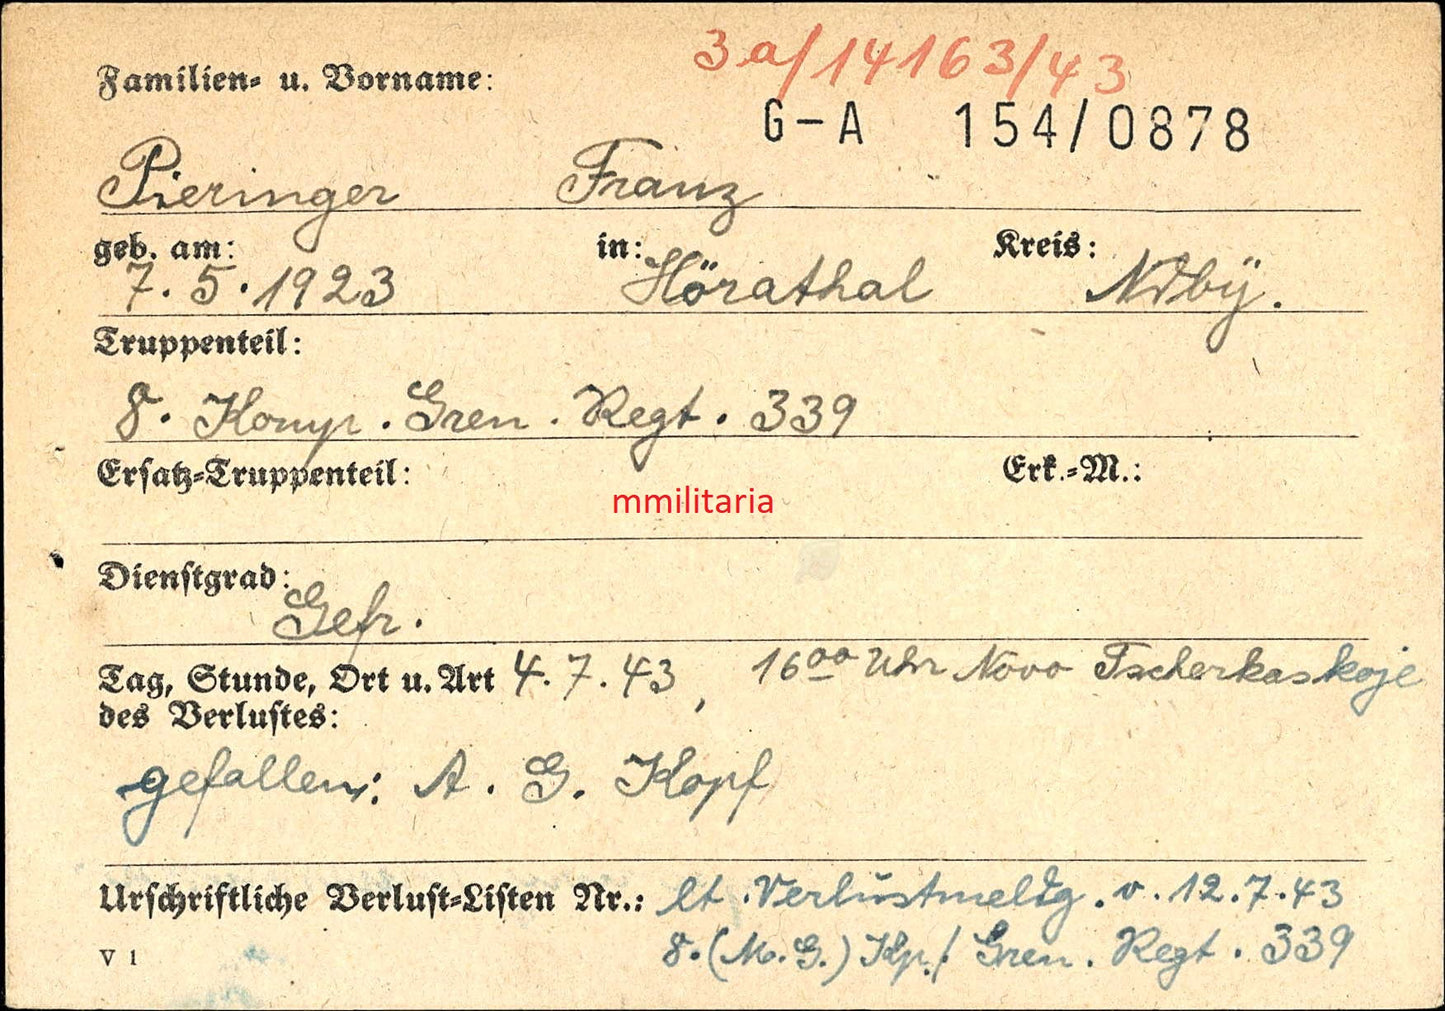 3a/14163/43
Familien- u. Vorname:
G-A 154/0878
Pieringer Franz
geb. am: in: Kreis:
7.5.1923 Hörathal Ndbÿ.
Truppenteil:
8. Komp. Gren. Regt. 339
Ersatz-Truppenteil: Erk.-M.:
mmilitaria
Dienstgrad:
Gefr.
Tag, Stunde, Ort u. Art 4.7.43, 16oo Uhr Novo Tscherkaskoje
des Verlustes:
gefallen: A. G. Kopf
Urschriftliche Verlust-Listen Nr.: lt. Verlustmeldg. v. 12.7.43
V 1 8.(M.G.) Kp./ Gren. Regt. 339